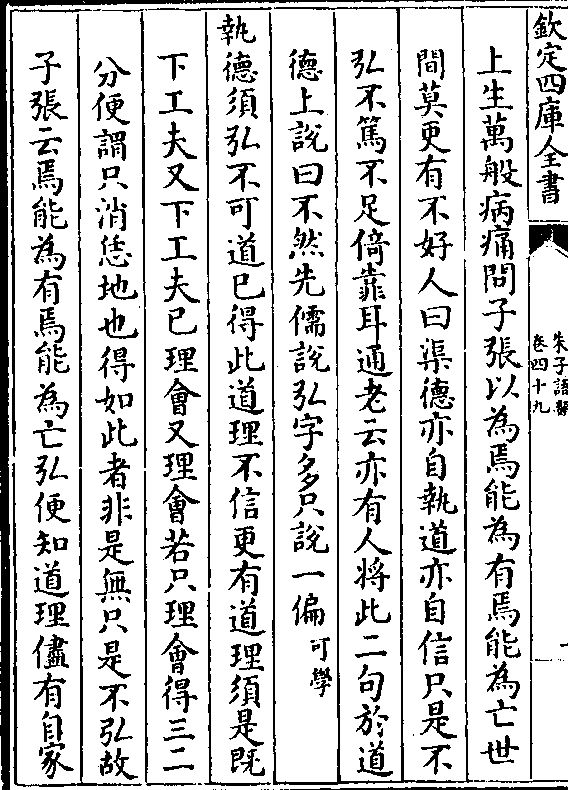 欽定四庫全書
朱子語類
卷四十九
上生萬般病痛問子張以為焉能為有焉能為亡世
間莫更有不好人曰渠德亦自執道亦自信只是不
弘不篤不足倚靠耳通老云亦有人將此二句於道
德上說曰不然先儒說弘字多只說一偏可學
執德須弘不可道已得此道理不信更有道理須是既
下工夫又下工夫已理會又理會若只理會得三二
分便謂只消恁地也得如此者非是無只是不弘故
子張云焉能為有焉能為亡弘便知道理儘有自家